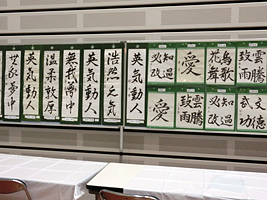 英気動人
温柔敦厚
無我夢中
英気動人
浩然之気
英気動人
必知改過
愛
花鳥舞歌
致雲騰雨
愛
致雲騰雨
必知改過